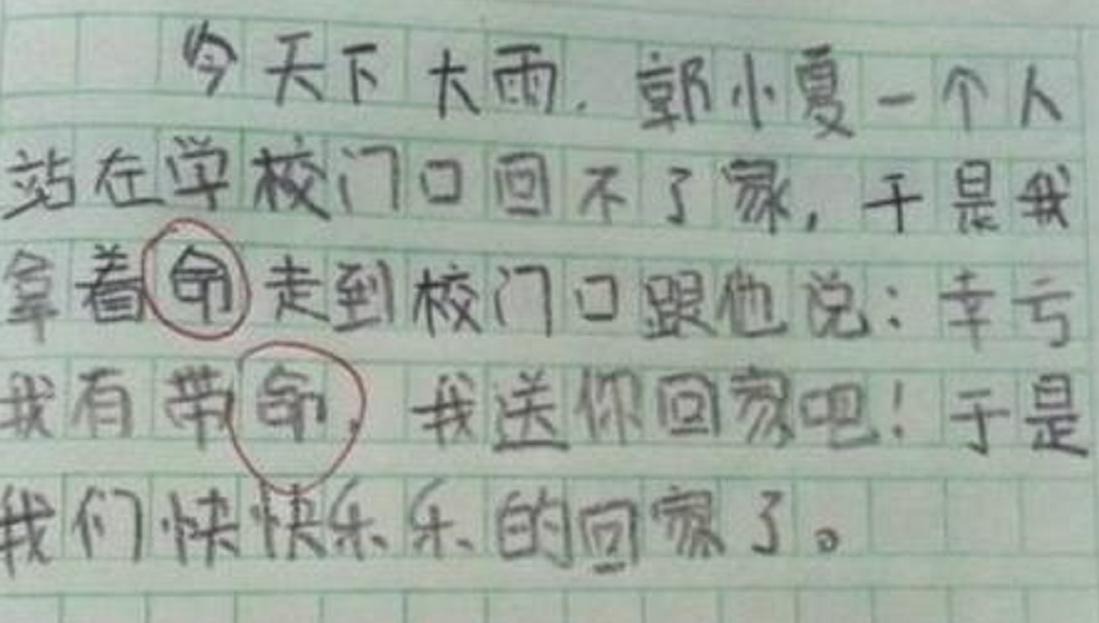 今天下大雨.郭小夏一个人
站在学校门口回不了家,于是我
拿着命走到校门口跟他说:幸亏
我有带命.我送你回家吧!于是
我们快快乐乐的回家了。